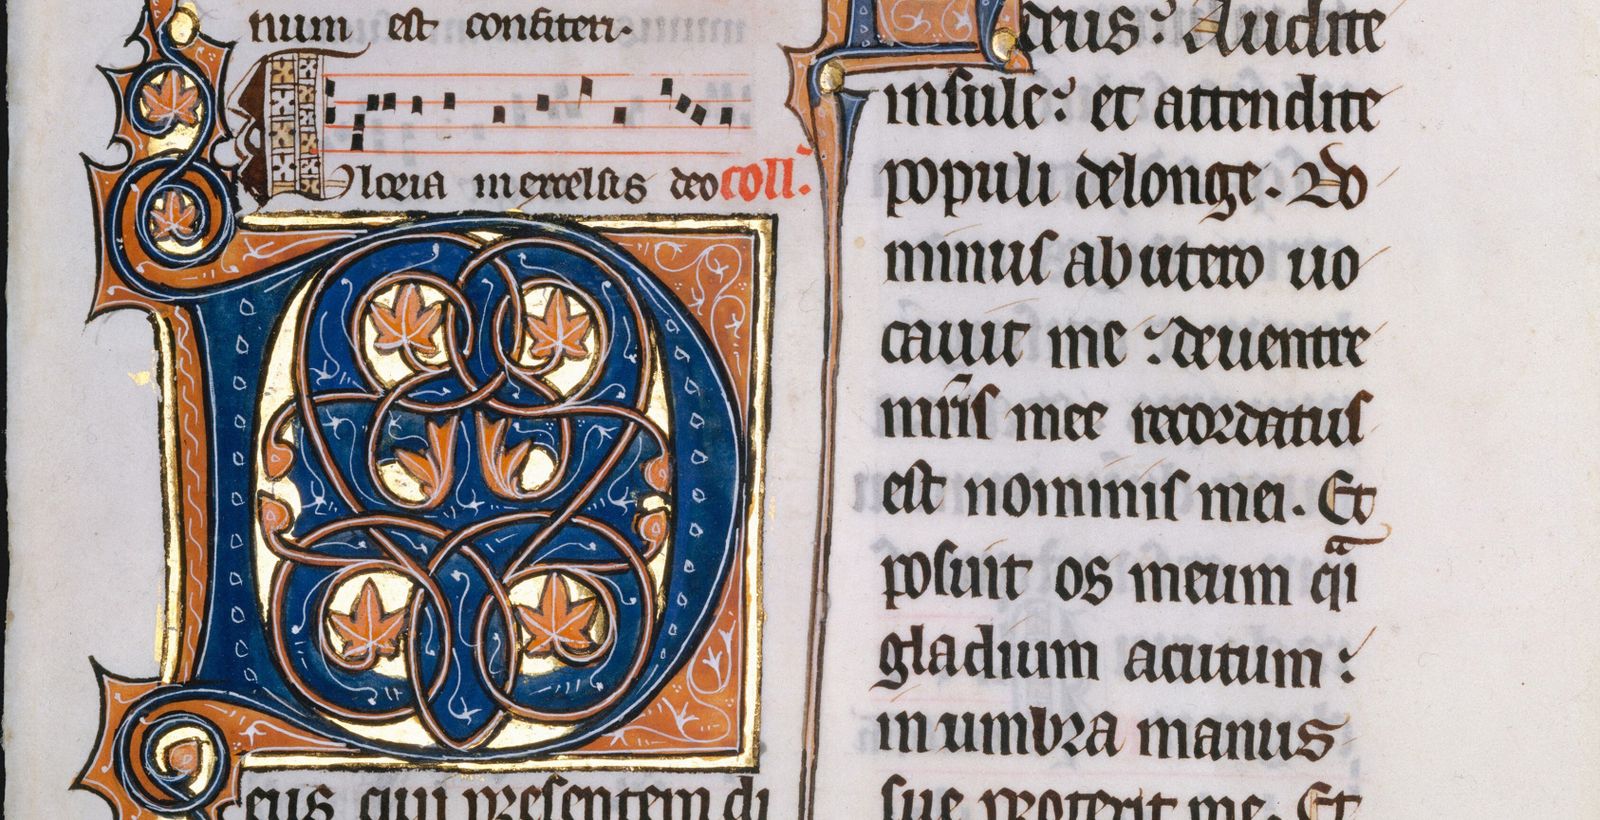 num est confiteri.
Gloria in excelsis deo coll'.
Deus qui presentem di
deus: Audite
insule: et attendite
populi delonge. Do
minus ab utero uo
cauit me: deuentre
mr̃is mee recordatus
est nominis mei. Et
posuit os meum q̃i
gladium acutum:
in umbra manus
sue protexit me. Et